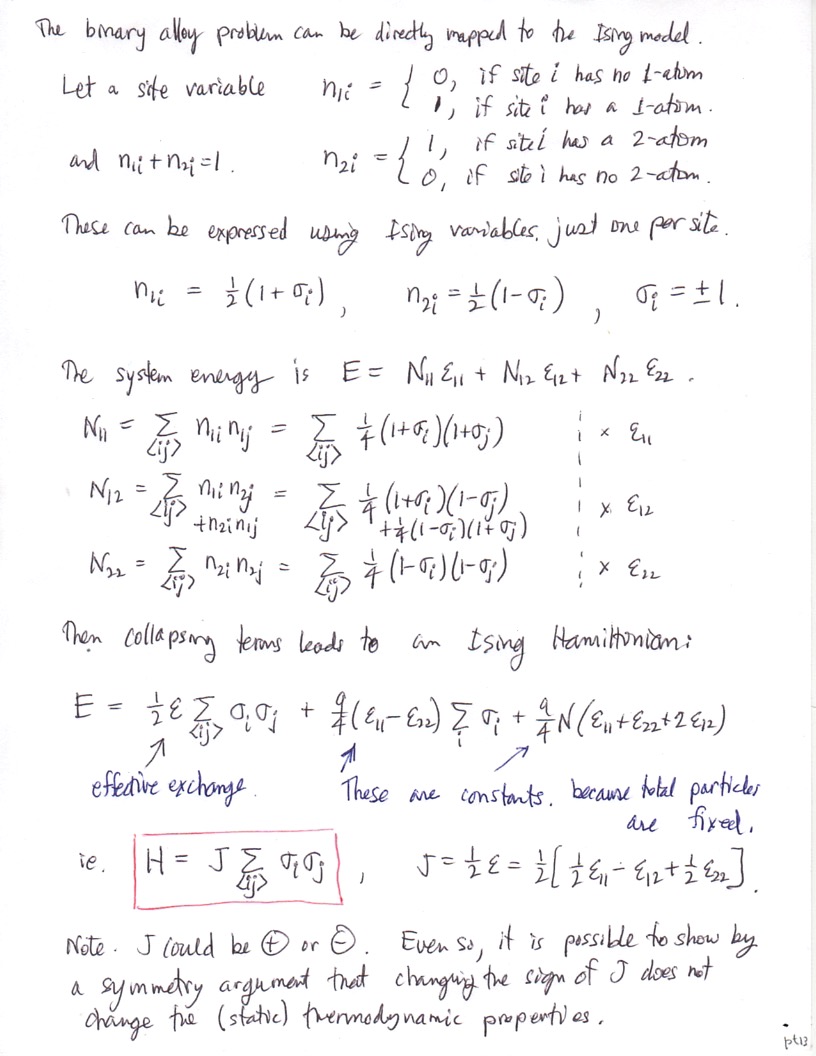 The binary alloy problem can be directly mapped to the Ising model.
Let a site variable n₁ᵢ = { 0, if site i has no 1-atom
1, if site i has a 1-atom.
and n₁ᵢ + n₂ᵢ = 1. n₂ᵢ = { 1, if site i has a 2-atom
0, if site i has no 2-atom.
These can be expressed using Ising variables, just one per site.
n₁ᵢ = ½(1+σᵢ), n₂ᵢ = ½(1-σᵢ), σᵢ = ±1.
The system energy is E = N₁₁ε₁₁ + N₁₂ε₁₂ + N₂₂ε₂₂.
N₁₁ = Σ<ij> n₁ᵢ n₁ⱼ = Σ<ij> ¼(1+σᵢ)(1+σⱼ) × ε₁₁
N₁₂ = Σ<ij> n₁ᵢ n₂ⱼ = Σ<ij> ¼(1+σᵢ)(1-σⱼ) × ε₁₂
+n₂ᵢ n₁ⱼ +¼(1-σᵢ)(1+σⱼ)
N₂₂ = Σ<ij> n₂ᵢ n₂ⱼ = Σ<ij> ¼(1-σᵢ)(1-σⱼ) × ε₂₂
Then collapsing terms leads to an Ising Hamiltonian:
E = ½ε Σ<ij> σᵢσⱼ + q/4(ε₁₁-ε₂₂) Σᵢ σᵢ + q/4 N(ε₁₁+ε₂₂+2ε₁₂)
effective exchange. These are constants, because total particles
are fixed.
ie. H = J Σ<ij> σᵢσⱼ, J = ½ε = ½[½ε₁₁ - ε₁₂ + ½ε₂₂].
Note. J could be ⊕ or ⊖. Even so, it is possible to show by
a symmetry argument that changing the sign of J does not
change the (static) thermodynamic properties.
pt13